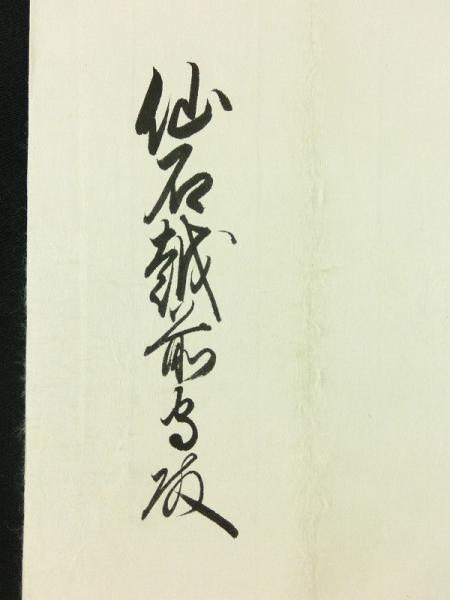 仙石越前守殿